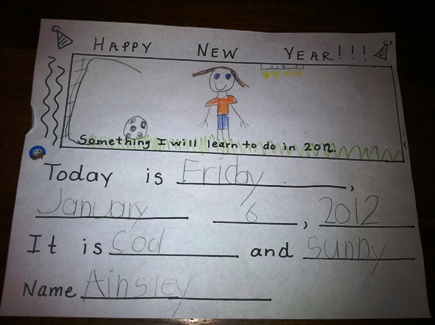 HAPPY NEW YEAR!!!
Something I will learn to do in 2012.
Today is Friday,
January 6, 2012
It is Cod and sunny
Name Ainsley